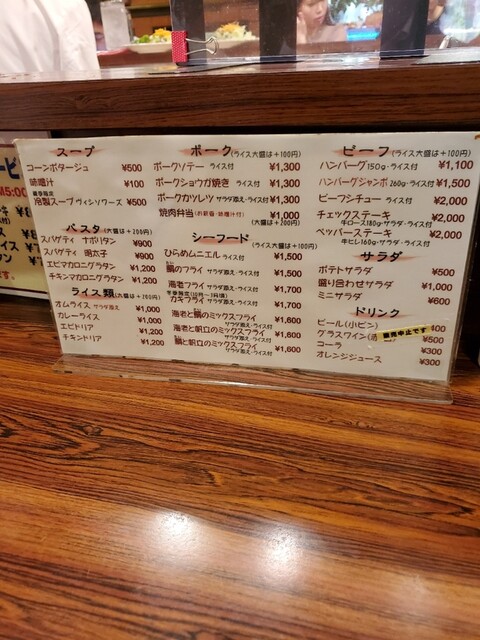 スープ
コーンポタージュ ¥500
味噌汁 ¥100
夏季限定
冷製スープ ヴィシソワーズ ¥500
パスタ(大盛は+200円)
スパゲティ ナポリタン ¥900
スパゲティ 明太子 ¥900
エビマカロニグラタン ¥1,200
チキンマカロニグラタン ¥1,200
ライス類(大盛は+200円)
オムライス サラダ添え ¥1,000
カレーライス ¥1,000
エビドリア ¥1,200
チキンドリア ¥1,200
ポーク(ライス大盛は+100円)
ポークソテー ライス付 ¥1,300
ポークショウガ焼き ライス付 ¥1,300
ポークカツレツ サラダ添え・ライス付 ¥1,300
焼肉弁当(お新香・味噌汁付) ¥1,000
(大盛は+200円)
シーフード
(ライス大盛は+100円)
ひらめムニエル ライス付 ¥1,500
鯛のフライ サラダ添え・ライス付 ¥1,500
海老フライ サラダ添え・ライス付 ¥1,700
カキフライ サラダ添え・ライス付 ¥1,700
海老と鯛のミックスフライ ¥1,600
サラダ添え・ライス付
海老と帆立のミックスフライ ¥1,600
サラダ添え・ライス付
鯛と帆立のミックスフライ ¥1,600
サラダ添え・ライス付
ビーフ(ライス大盛は+100円)
ハンバーグ 150g・ライス付 ¥1,100
ハンバーグジャンボ 260g・ライス付 ¥1,500
ビーフシチュー ライス付 ¥2,000
チェックステーキ ¥2,000
牛ロース180g・サラダ・ライス付
ペッパーステーキ ¥2,000
牛ヒレ160g・サラダ・ライス付
サラダ
ポテトサラダ ¥500
盛り合わせサラダ ¥1,000
ミニサラダ ¥600
ドリンク
ビール(小ビン)
グラスワイン ¥500
販売中止です
コーラ ¥300
オレンジジュース ¥300